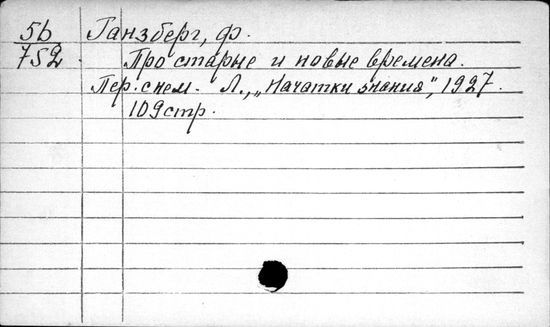 5b Ганзберг, Ф.
752 Про старые и новые времена.
Пер. с нем. Л., „Начатки знания", 1927.
109 стр.